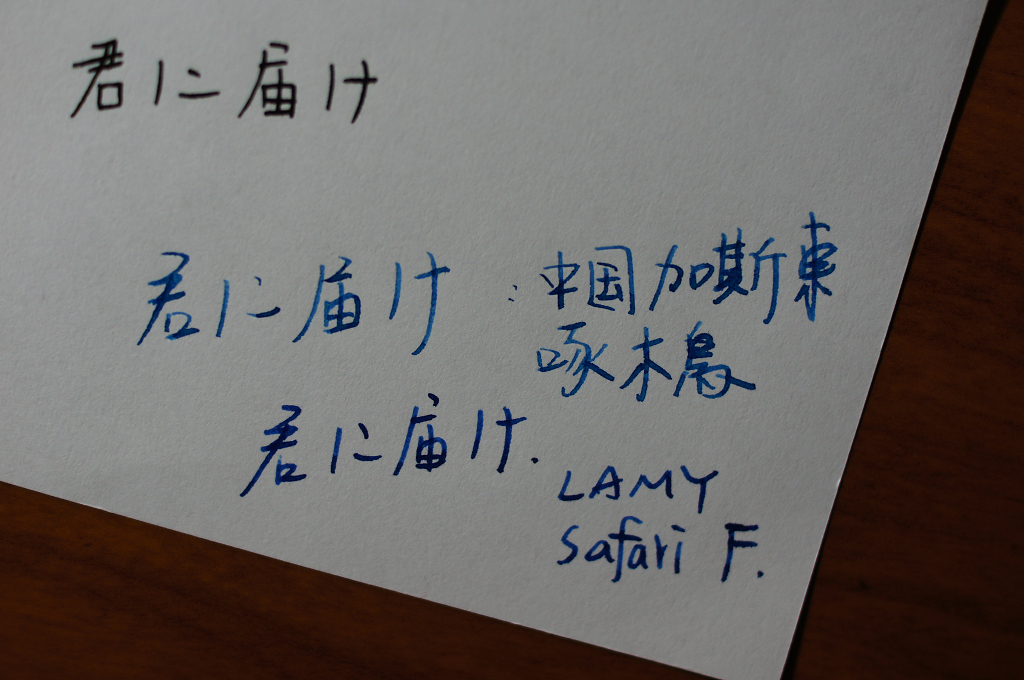 君に届け
君に届け : 中国加斯東
啄木鳥
君に届け.
LAMY
Safari F.